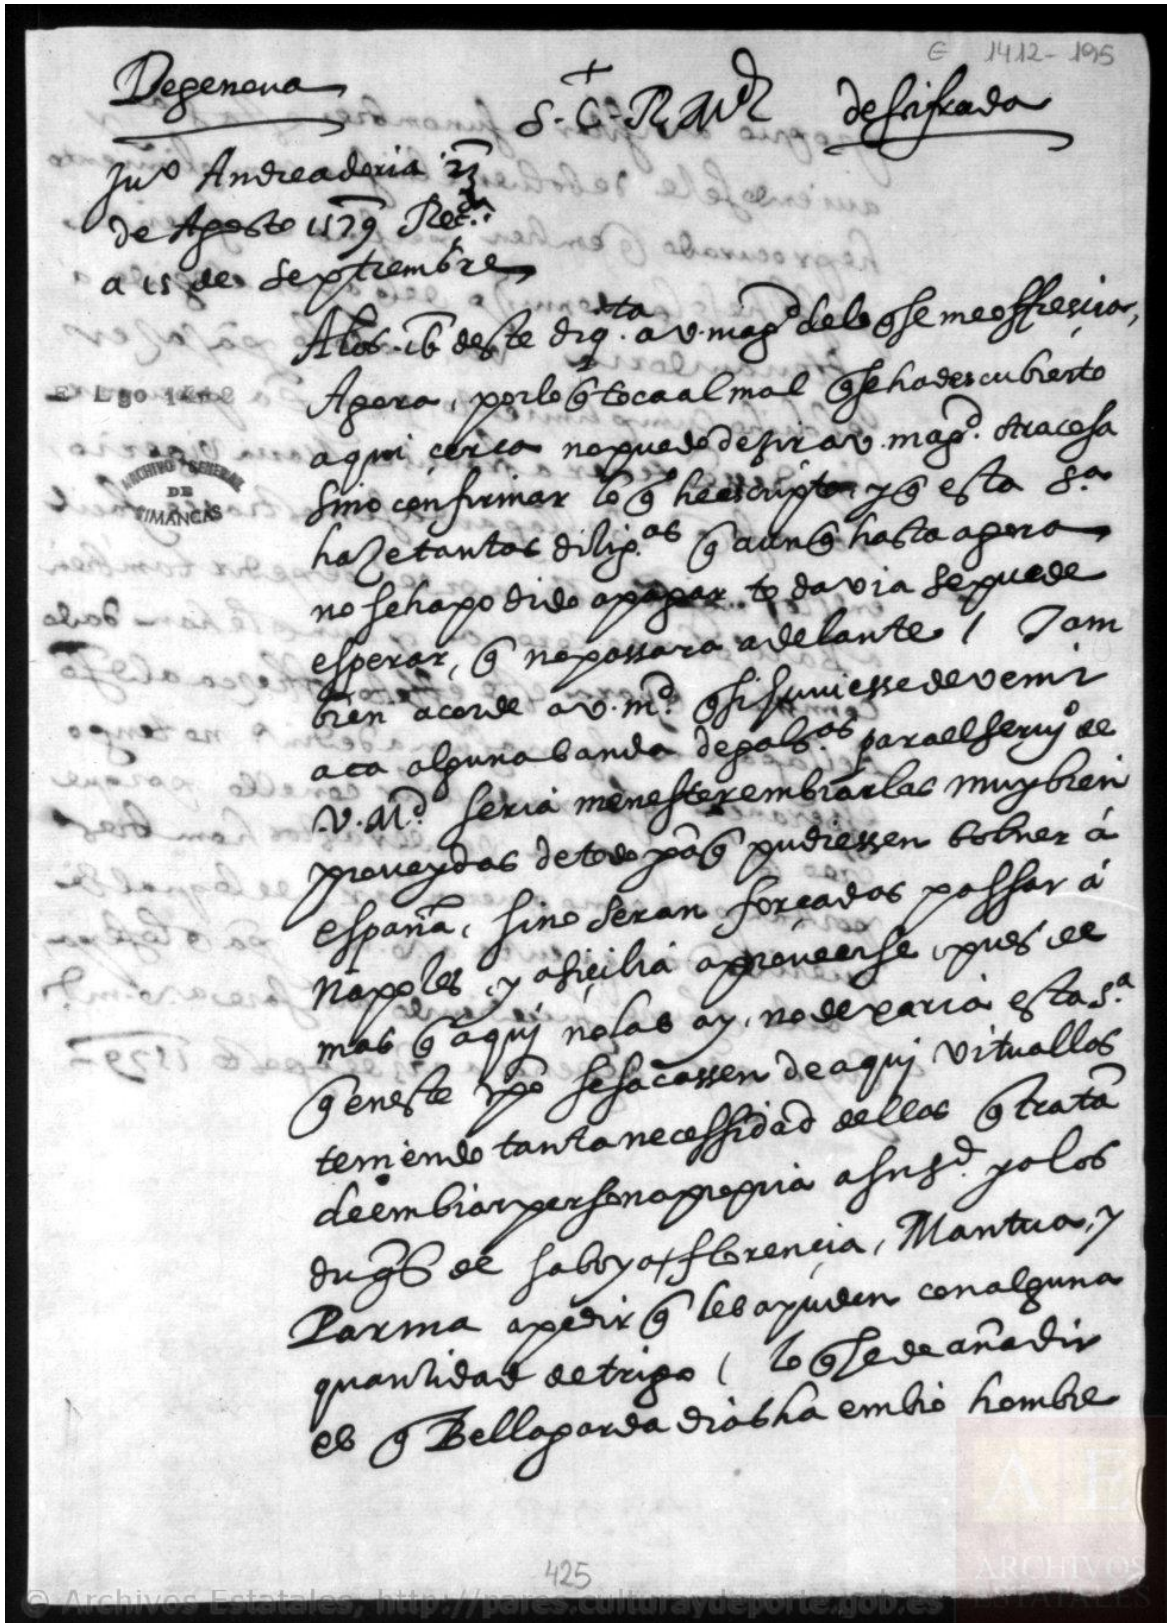 E 1412-195
Degenova
+
S. C. R. Md
desifrada
Juo Andreadoria 23
de Agosto 1579 Recda
a 15 de Septiembre
A los 16 deste dixe a v. magd delo q̃ se me offresçia,
Agora, por lo q̃ toca al mal q̃ se ha descubierto
aqui cerca no puedo desir a v. magd. otra cosa
sino confirmar lo q̃ he escripto, y q̃ esta S.a
haze tantas dilig.as q̃ aunq̃ hasta agora
no se ha podido apagar todavia se puede
esperar, q̃ no passara adelante / Tam
bien acorde a v. md. q̃ si huuiesse de venir
aca alguna banda de gals.as para el seruo de
.v. Md. seria menester embiarlas muy bien
proueydas de todo paq̃ pudiessen boluer á
españa, sino seran forçadas passar á
Napoles, y a siçilia a proueerse, pues de
mas q̃ aqui no las ay, no dexaria esta S.a
q̃ en este tpo se sacassen de aqui vituallas
teniendo tanta necessidad dellas q̃ tratã
de embiar persona propria a su Sd. y a los
duq̃s de saboya, florencia, Mantua, y
Parma a pedir q̃ les ayuden con alguna
quantidad de trigo / lo q̃ se de añadir
es q̃ Bellagarda dias ha embió hombre
E Lgo 1412
ARCHIVO GENERAL
DE
SIMANCAS
425
A E
ARCHIVOS
ESTATALES
© Archivos Estatales, http://pares.culturaydeporte.gob.es